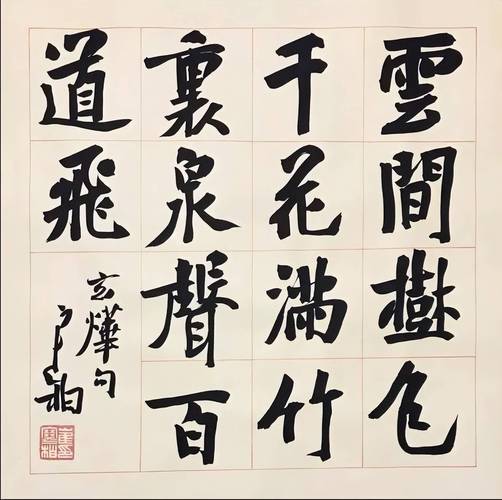 雲間樹色
千花滿竹
裏泉聲百
道飛
玄燁句